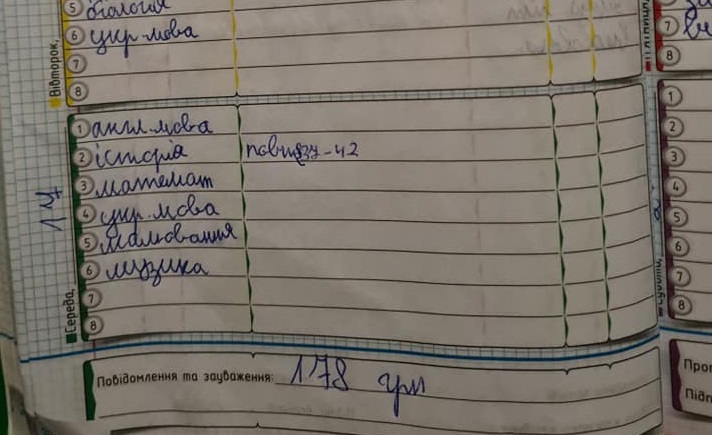 5 біологія
6 укр. мова
7
8
Вівторок,
1 англ. мова
2 історія повт§37-42
3 математ
4 укр. мова
5 малювання
6 музика
7
8
Середа,
Повідомлення та зауваження: 178 грн
7
8
1
2
3
4
5
6
7
8